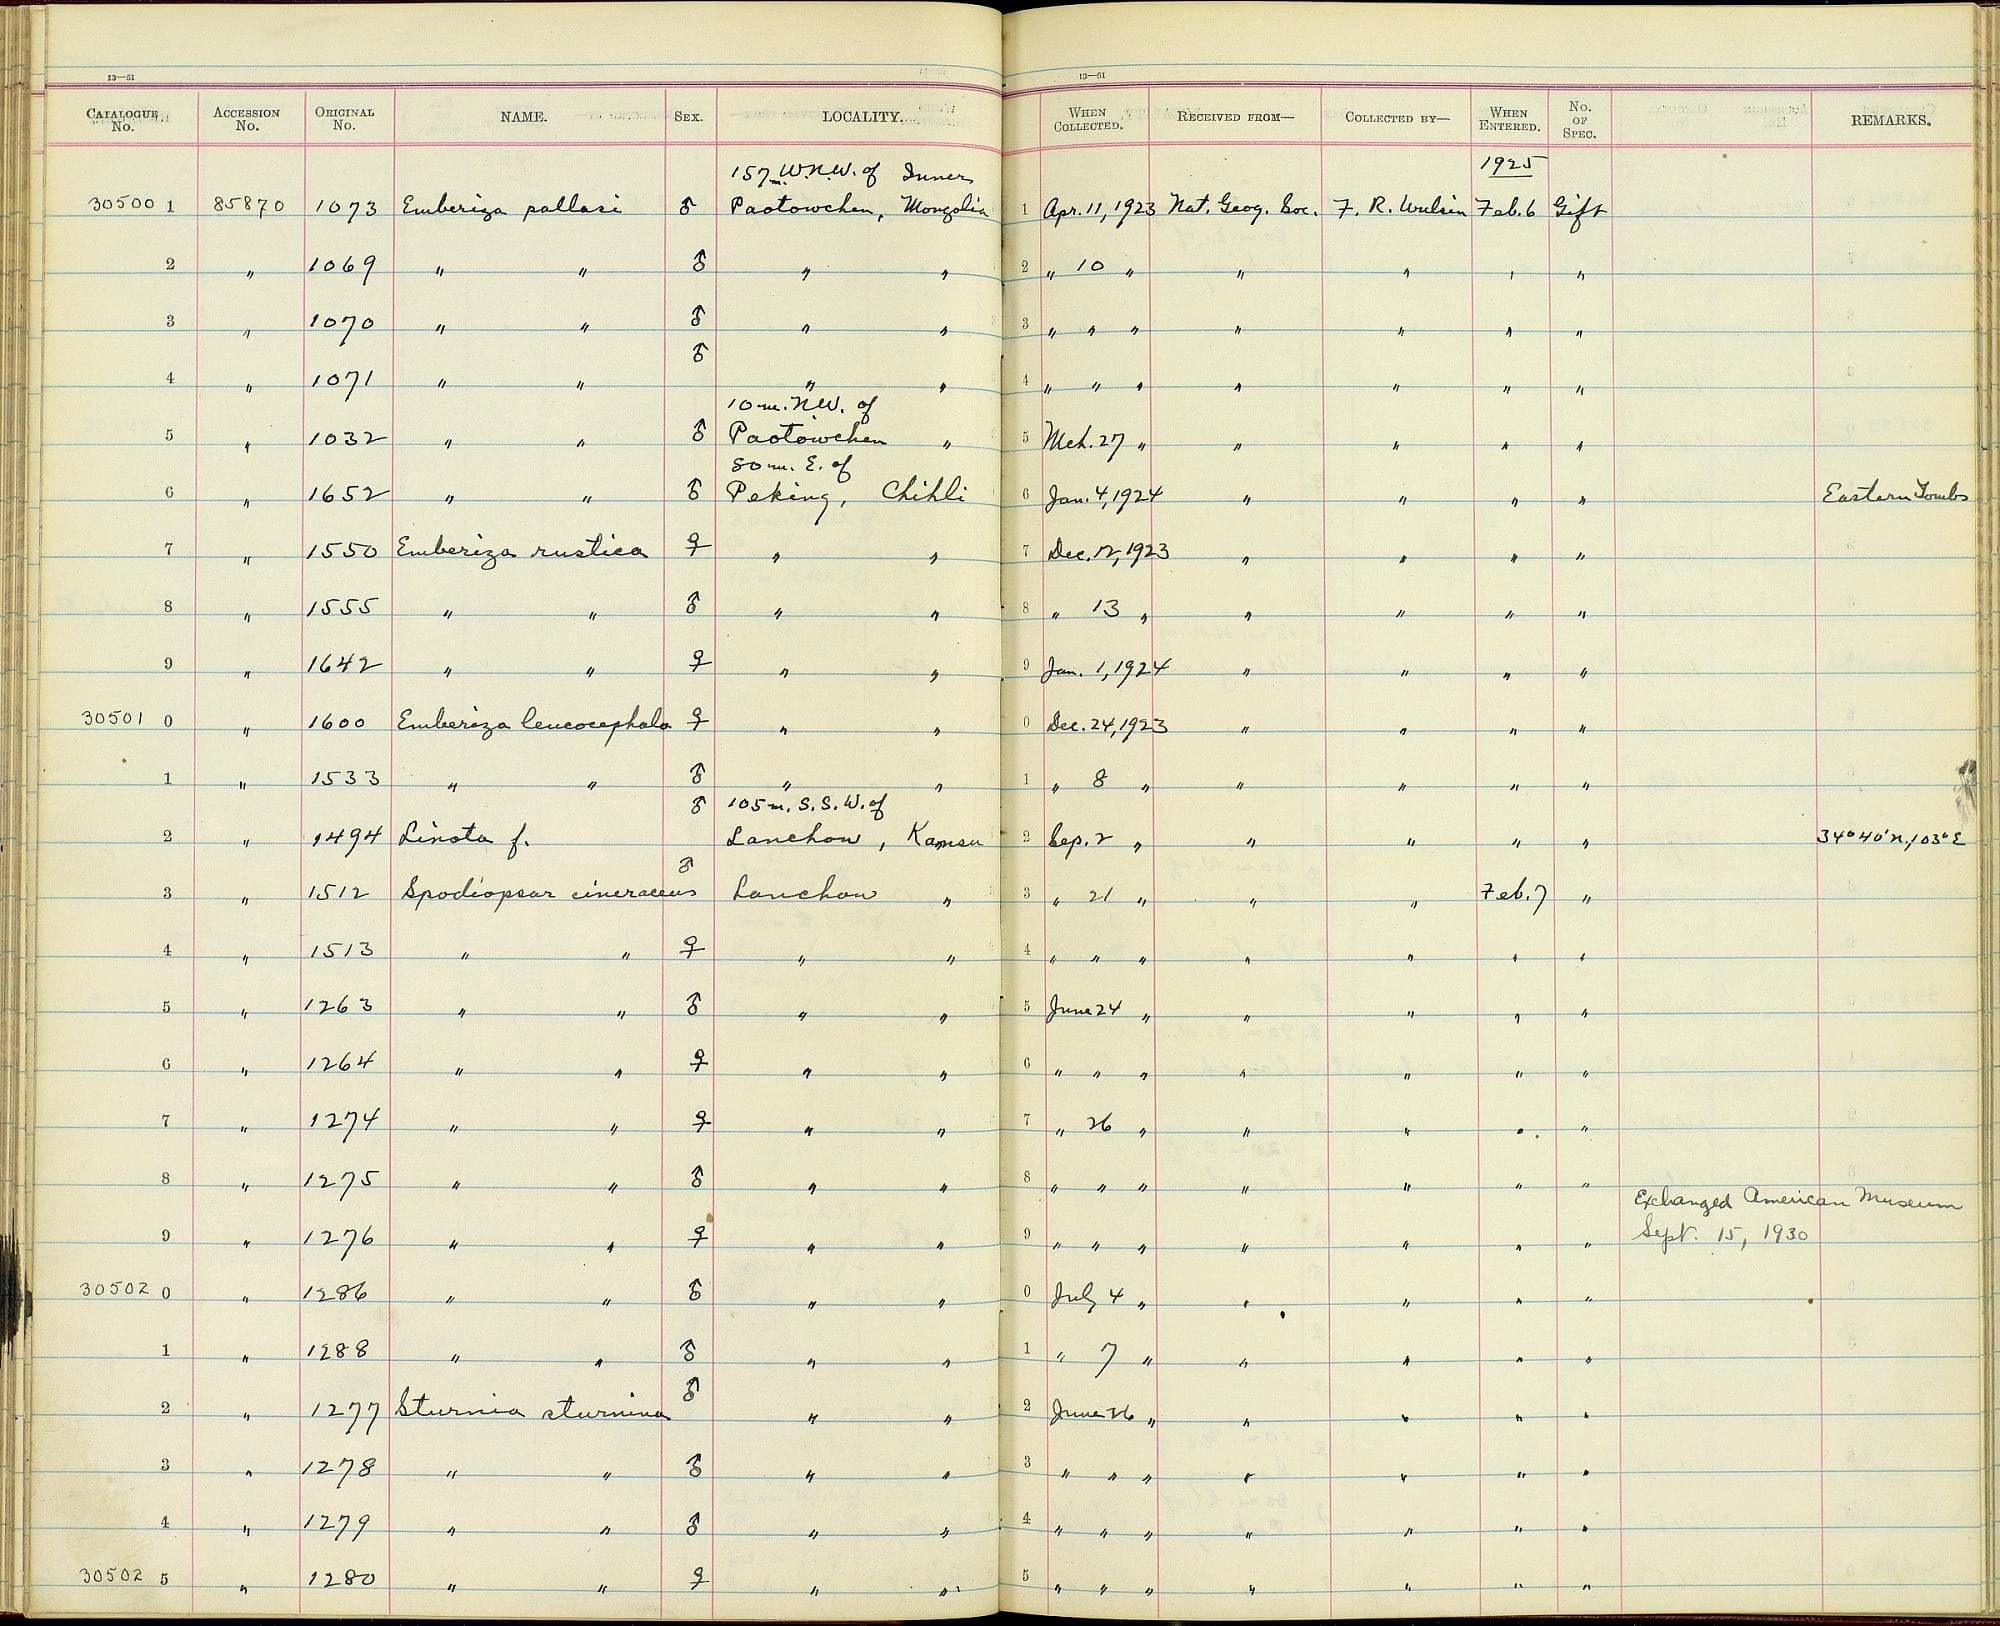 13—51
13—51
CATALOGUE No. ACCESSION No. ORIGINAL No. NAME. SEX. LOCALITY. WHEN COLLECTED. RECEIVED FROM— COLLECTED BY— WHEN ENTERED. No. OF SPEC. REMARKS.
1925
157 m. W.N.W. of Inner
30500 1 85870 1073 Emberiza pallasi ♂ Paotowchen, Mongolia 1 Apr. 11, 1923 Nat. Geog. Soc. F. R. Wulsin Feb. 6 Gift
2 " 1069 " " ♂ " " 2 " 10 " " " " "
3 " 1070 " " ♂ " " 3 " " " " " " "
4 " 1071 " " ♂ " " 4 " " " " " " "
10 m. N.W. of
5 " 1032 " " ♂ Paotowchen " 5 Mch. 27 " " " " "
80 m. E. of
6 " 1652 " " ♂ Peking, Chihli 6 Jan. 4, 1924 " " " " Eastern Tombs
7 " 1550 Emberiza rustica ♀ " " 7 Dec. 12, 1923 " " " "
8 " 1555 " " ♂ " " 8 " 13 " " " " "
9 " 1642 " " ♀ " " 9 Jan. 1, 1924 " " " "
30501 0 " 1600 Emberiza leucocephala ♀ " " 0 Dec. 24, 1923 " " " "
1 " 1533 " " ♂ " " 1 " 8 " " " " "
105 m. S.S.W. of
2 " 1494 Linota f. ♂ Lanchow, Kansu 2 Sep. 2 " " " " " 34°40'N., 103°E
3 " 1512 Spodiopsar cineraceus ♂ Lanchow " 3 " 21 " " " Feb. 7 "
4 " 1513 " " ♀ " " 4 " " " " " " "
5 " 1263 " " ♂ " " 5 June 24 " " " " "
6 " 1264 " " ♀ " " 6 " " " " " " "
7 " 1274 " " ♀ " " 7 " 26 " " " " "
8 " 1275 " " ♂ " " 8 " " " " " " "
Exchanged American Museum
9 " 1276 " " ♀ " " 9 " " " " " " " Sept. 15, 1930
30502 0 " 1286 " " ♂ " " 0 July 4 " " " " "
1 " 1288 " " ♂ " " 1 " 7 " " " " "
2 " 1277 Sturnia sturnina ♂ " " 2 June 26 " " " " "
3 " 1278 " " ♂ " " 3 " " " " " " "
4 " 1279 " " ♂ " " 4 " " " " " " "
30502 5 " 1280 " " ♀ " " 5 " " " " " " "